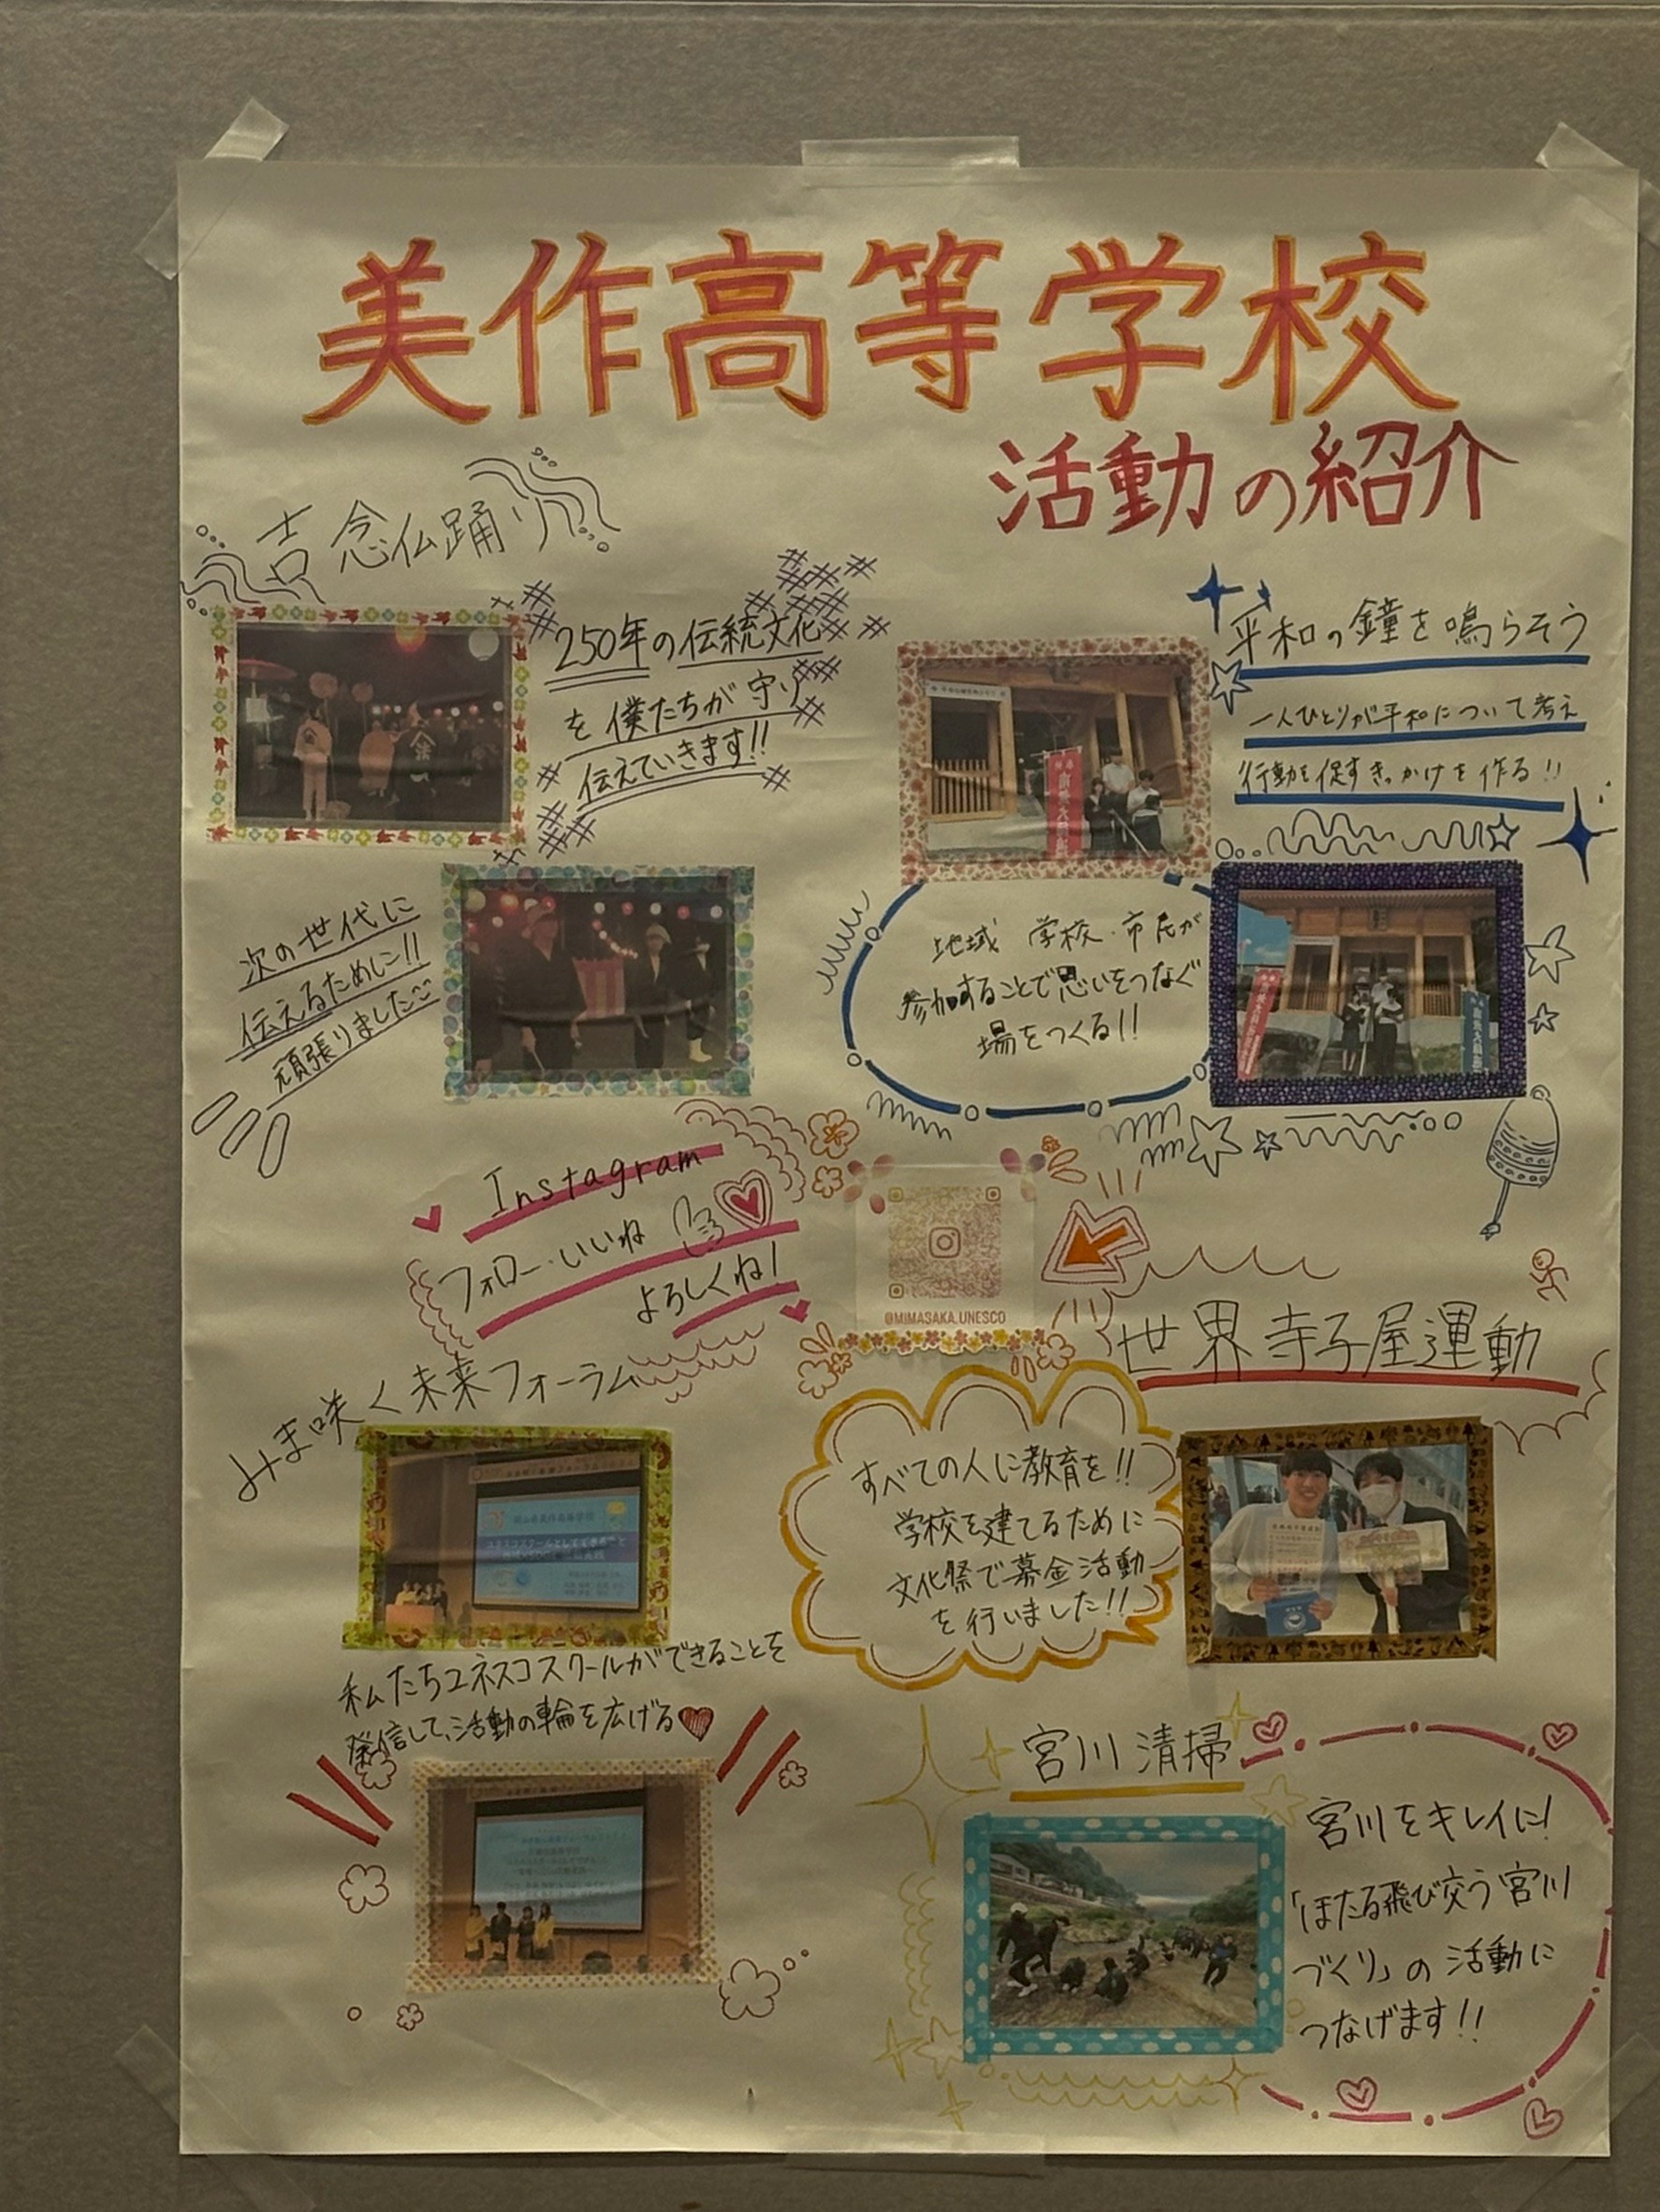 美作高等学校
活動の紹介
吉念仏踊り
250年の伝統文化
を僕たちが守り
伝えていきます!!
次の世代に
伝えるために!!
頑張りました
平和の鐘を鳴らそう
一人ひとりが平和について考え
行動を促すきっかけを作る!!
地域 学校・市民が
参加することで思いをつなぐ
場をつくる!!
Instagram
フォロー・いいね
よろしくね!
@MIMASAKA.UNESCO
世界寺子屋運動
すべての人に教育を!!
学校を建てるために
文化祭で募金活動
を行いました!!
みま咲く未来フォーラム
私たちユネスコスクールができることを
発信して、活動の輪を広げる
宮川清掃
宮川をキレイに!
「ほたる飛び交う宮川
づくり」の活動に
つなげます!!